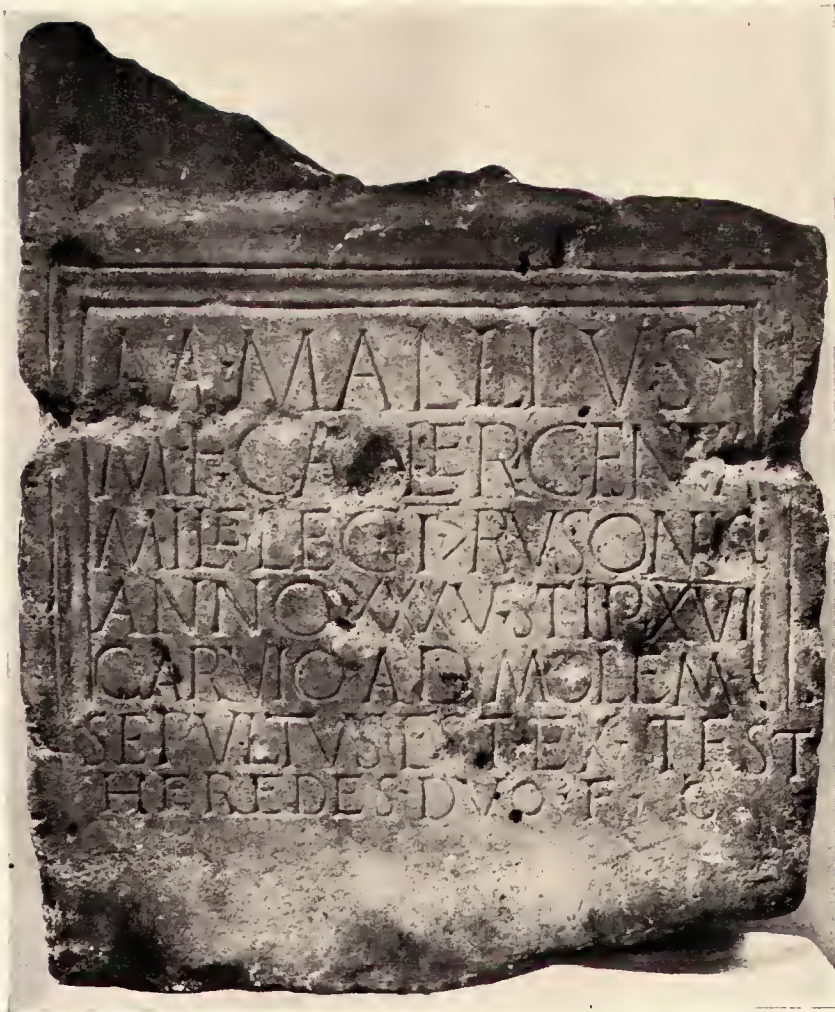 M·MALLIVS·
M·F·GALER·GENVA
MILE·LEG·I·7·RVSON
ANNO·XXXV·STIP·XVI
CARVIO·AD·MOLEM·
SEPVLTVS·EST·EX·TEST
HEREDES·DVO·F·C